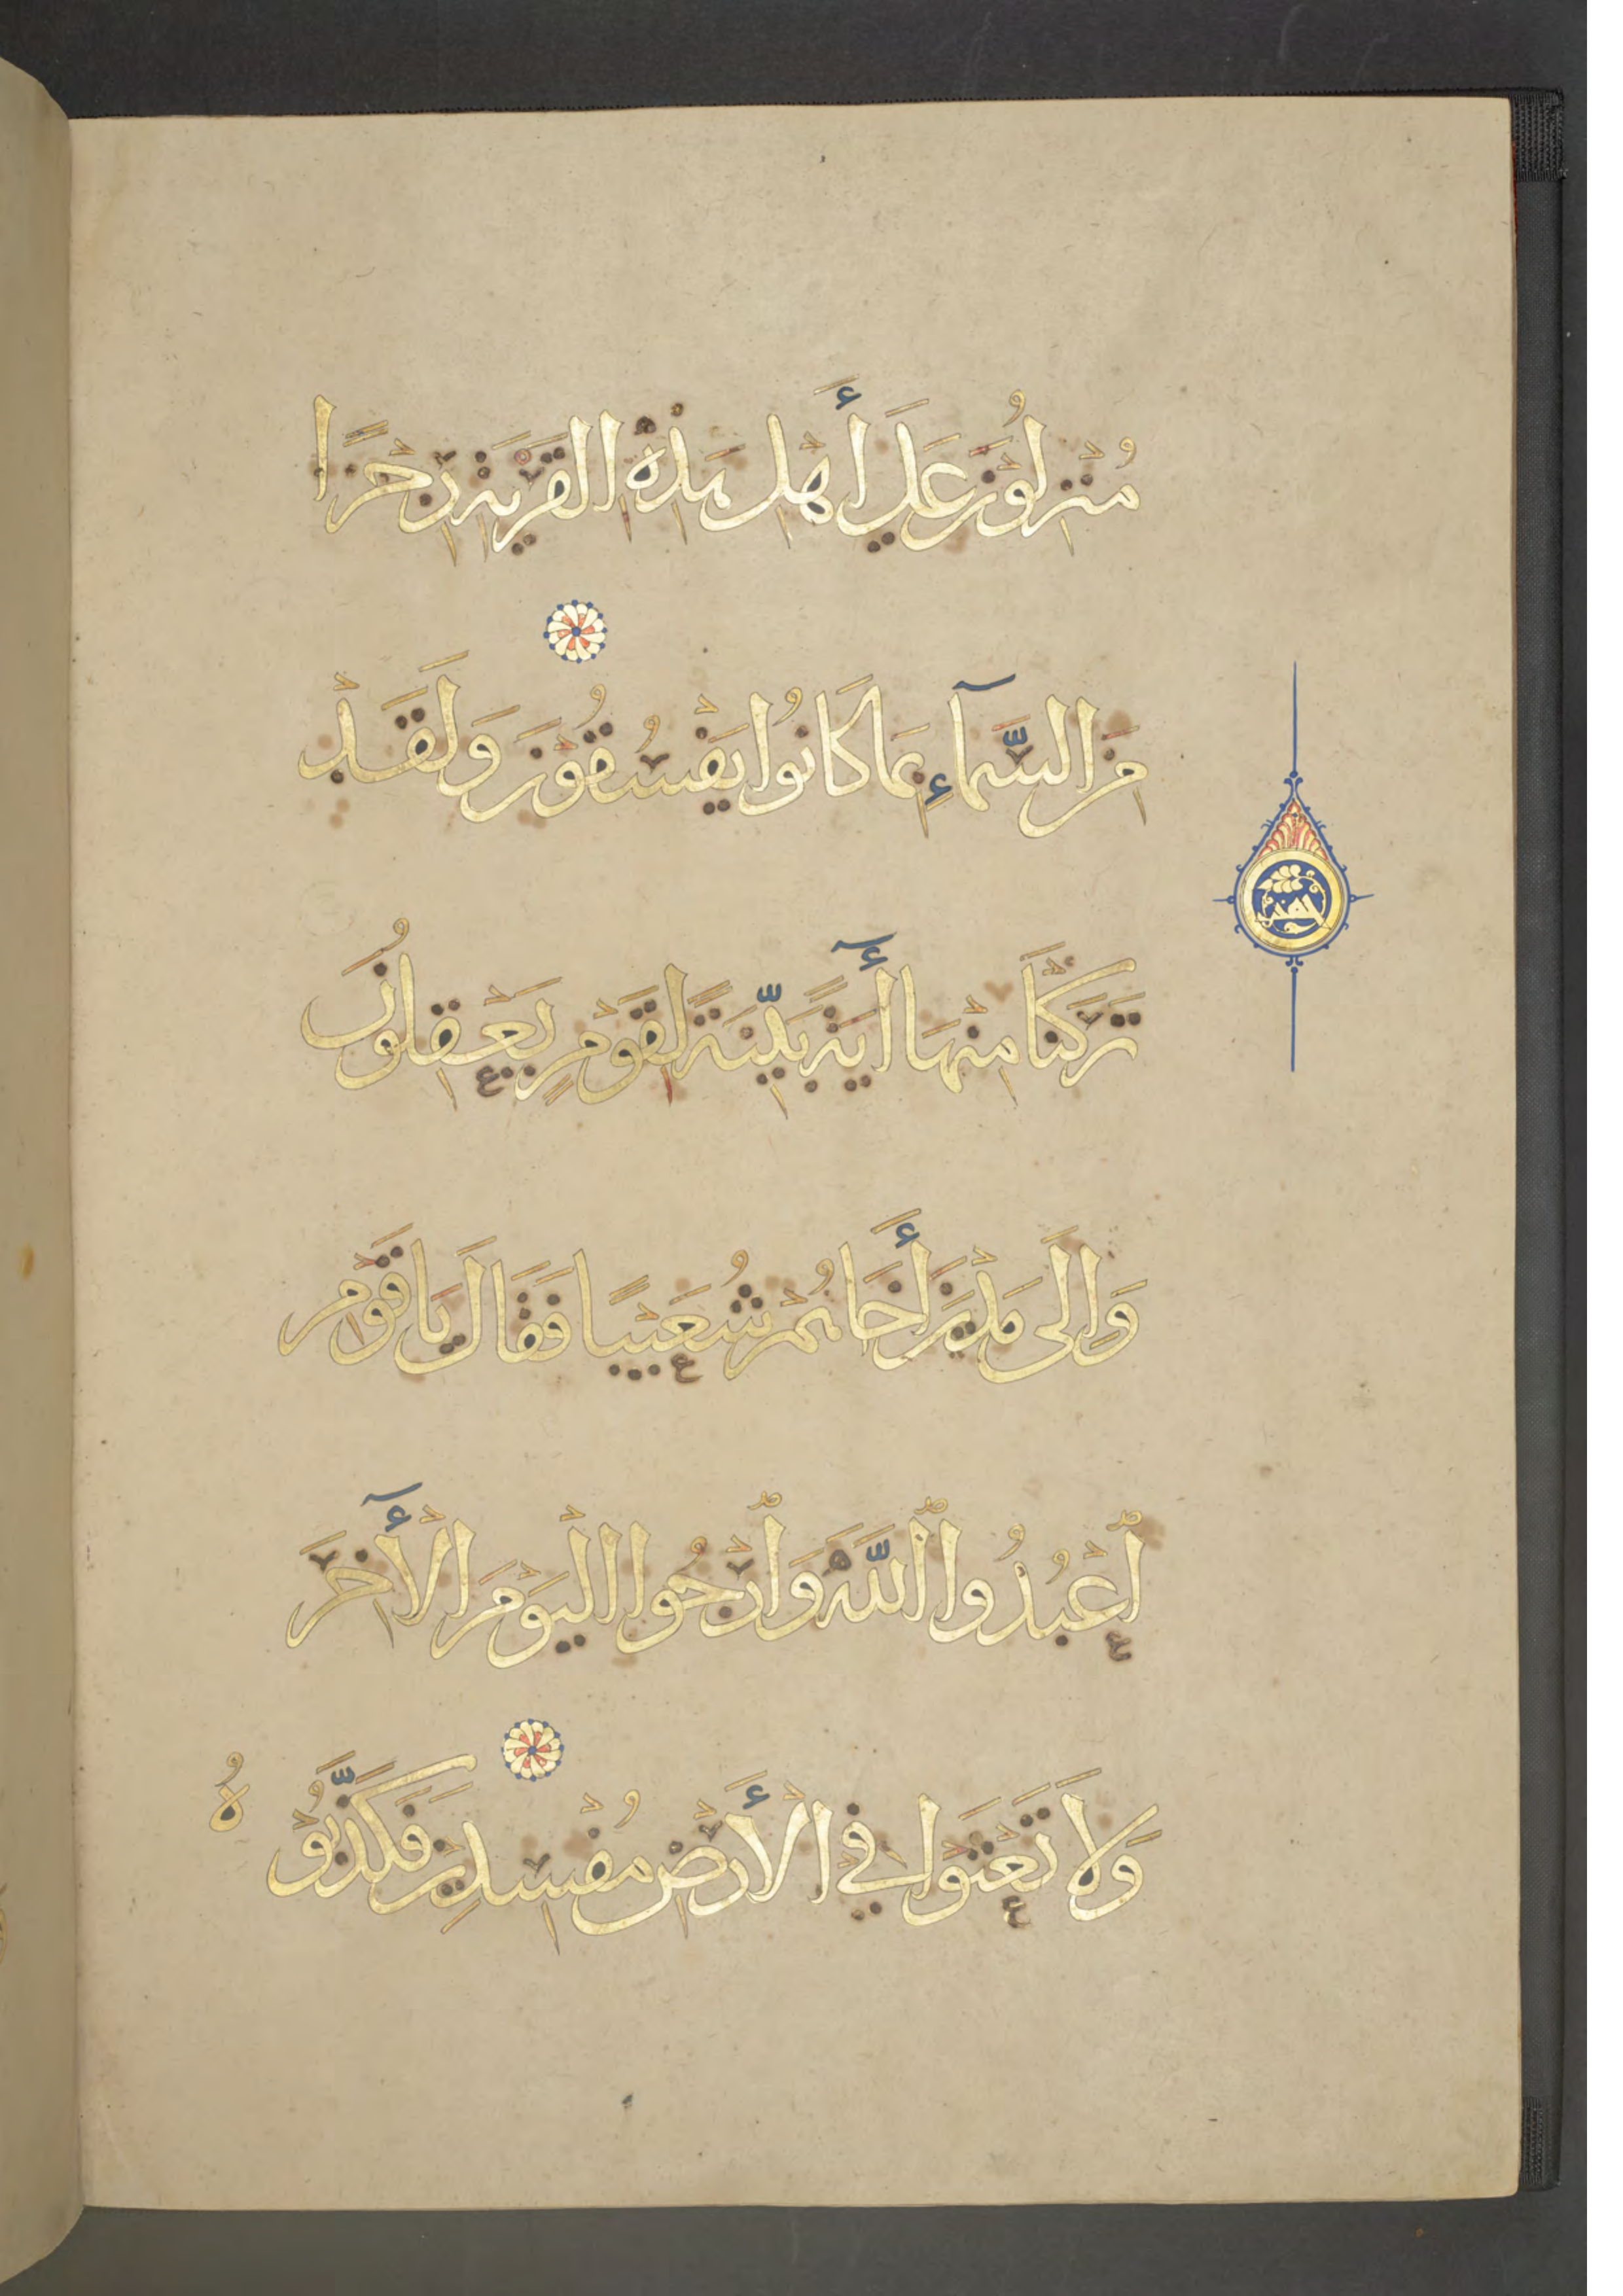 مُنْزِلُونَ عَلَى أَهْلِ هَذِهِ القَرْيَةِ رِجْزًا
مِنَ السَّمَآءِ بِمَا كَانُوا يَفْسُقُوْنَ وَلَقَدْ
تَرَكْنَا مِنْهَا أَيَةً بَيِّنَةً لِقَوْمٍ يَعْقِلُونَ
وَإِلَى مَدْيَنَ أَخَاهُمْ شُعَيْبًا فَقَالَ يَا قَوْمِ
ٱعْبُدُوا ٱللَّهَ وَٱرْجُوا الْيَوْمَ الْأَخِرَ
وَلَا تَعْثَوْا فِي الْأَرْضِ مُفْسِدِينَ فَكَذَّبُوهُ